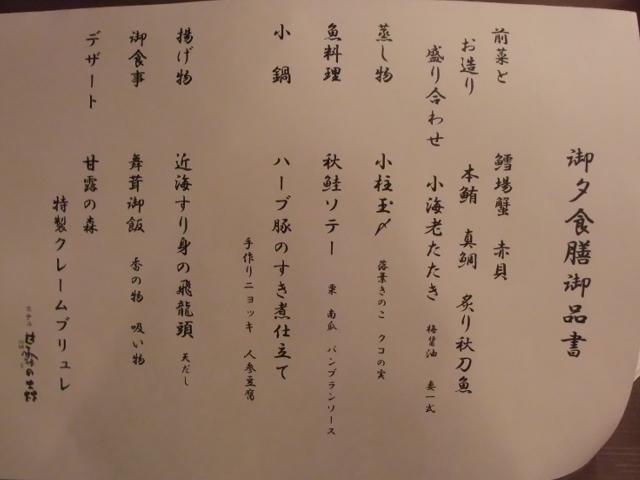 御夕食膳御品書
前菜と 鱈場蟹 赤貝
お造り 本鮪 真鯛 炙り秋刀魚
盛り合わせ 小海老たたき 梅醤油 妻一式
蒸し物 小柱玉〆 落葉きのこ クコの実
魚料理 秋鮭ソテー 栗 南瓜 バンブランソース
小鍋 ハーブ豚のすき煮仕立て
手作りニョッキ 人参豆腐
揚げ物 近海すり身の飛龍頭 天だし
御食事 舞茸御飯 香の物 吸い物
デザート 甘露の森
特製クレームブリュレ
ホテル
甘露の森